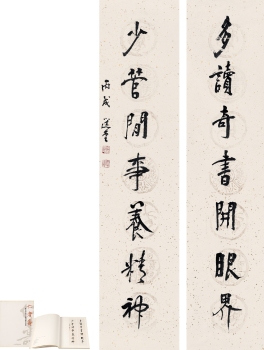 多讀奇書開眼界
少管閒事養精神
丙戌 選堂